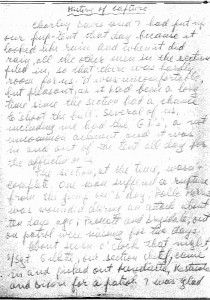 History of Capture
Charley Bare and I had put up
our pup-tent that day because it
looked like rain. And when it did
rain, all the other men in the section
piled in, so that there was hardly
room for us. It was uncomfortable,
but pleasant, as it had been a long
time since the section had a chance
to shoot the bull. Several of us,
including me had the G.I.'s, a not
uncommon ailment and it was
in and out of the tent all day for
the afflicted
The section, at the time, wasn't
complete. One man suffered a rupture
from
was wounded during an attack about
ten days ago; and , out
on patrol were missing for two days.
About seven o'clock that night,
S/Sgt. , our section chief, came
in and picked out Benedicto,
and Dixon for a patrol. I was glad